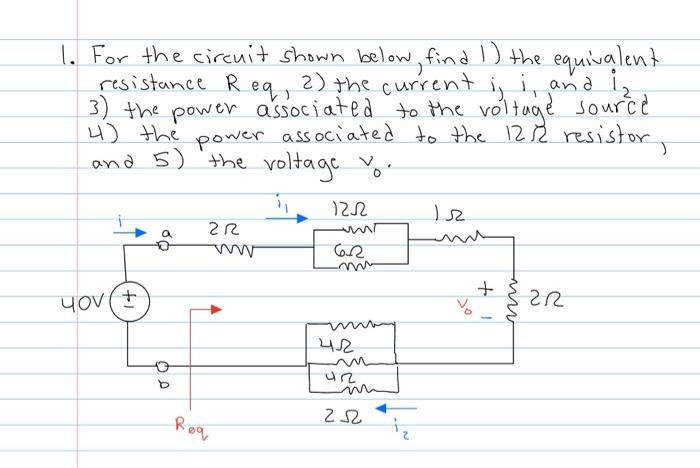 1. For the circuit shown below, find 1) the equivalent
resistance R eq, 2) the current i, i₁ and i₂
3) the power associated to the voltage source
4) the power associated to the 12Ω resistor,
and 5) the voltage v₀.
i₁
12Ω
1Ω
i
a
2Ω
6Ω
40V
+
-
+
v₀
-
2Ω
4Ω
b
4Ω
2Ω
i₂
Req